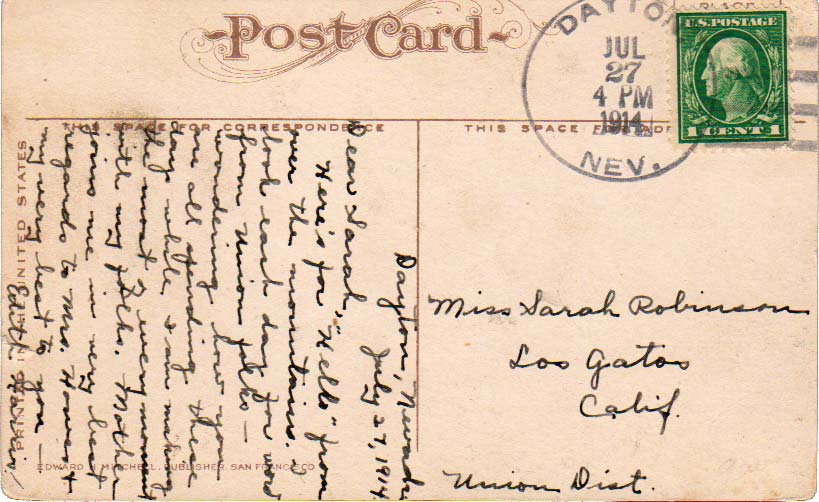 Post Card
PLACE
U.S. POSTAGE
1 CENT 1
DAYTON
JUL
27
4 PM
1914
NEV.
THIS SPACE FOR CORRESPONDENCE
THIS SPACE F
Dayton, Nevada
July 27, 1914
Dear Sarah,
Here's for "Hello" from
over the mountains. I
look each day for word
from Union folks —
wondering how you
are all spending these
days while I am making
the most of every moment
with my folks. Mother
joins me in very best
regards to Mrs.
my very best to you —
Edith
Miss Sarah Robinson
Los Gatos
Calif.
Union Dist.
PRINTED IN THE UNITED STATES
EDWARD H. MITCHELL, PUBLISHER, SAN FRANCISCO